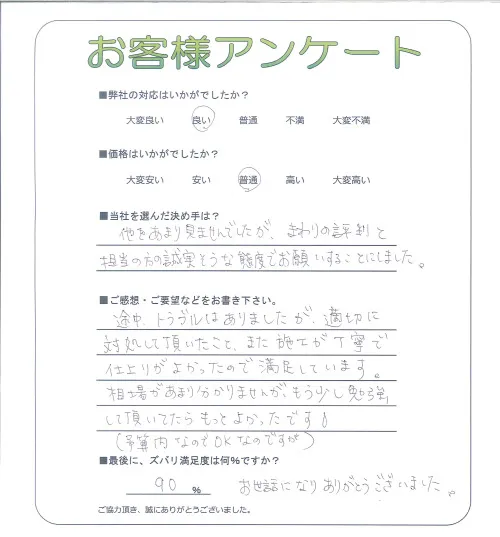 お客様アンケート
■弊社の対応はいかがでしたか？
大変良い 良い 普通 不満 大変不満
■価格はいかがでしたか？
大変安い 安い 普通 高い 大変高い
■当社を選んだ決め手は？
他をあまり見ませんでしたが、まわりの評判と
担当の方の誠実そうな態度でお願いすることにしました。
■ご感想・ご要望などをお書き下さい。
途中、トラブルはありましたが、適切に
対処して頂いたこと、また施工が丁寧で
仕上りがよかったので満足しています。
相場があまり分かりませんが、もう少し勉強
して頂いてたらもっとよかったです！
（予算内なのでOKなのですが）
■最後に、ズバリ満足度は何％ですか？
90 ％ お世話になりありがとうございました。
ご協力頂き、誠にありがとうございました。